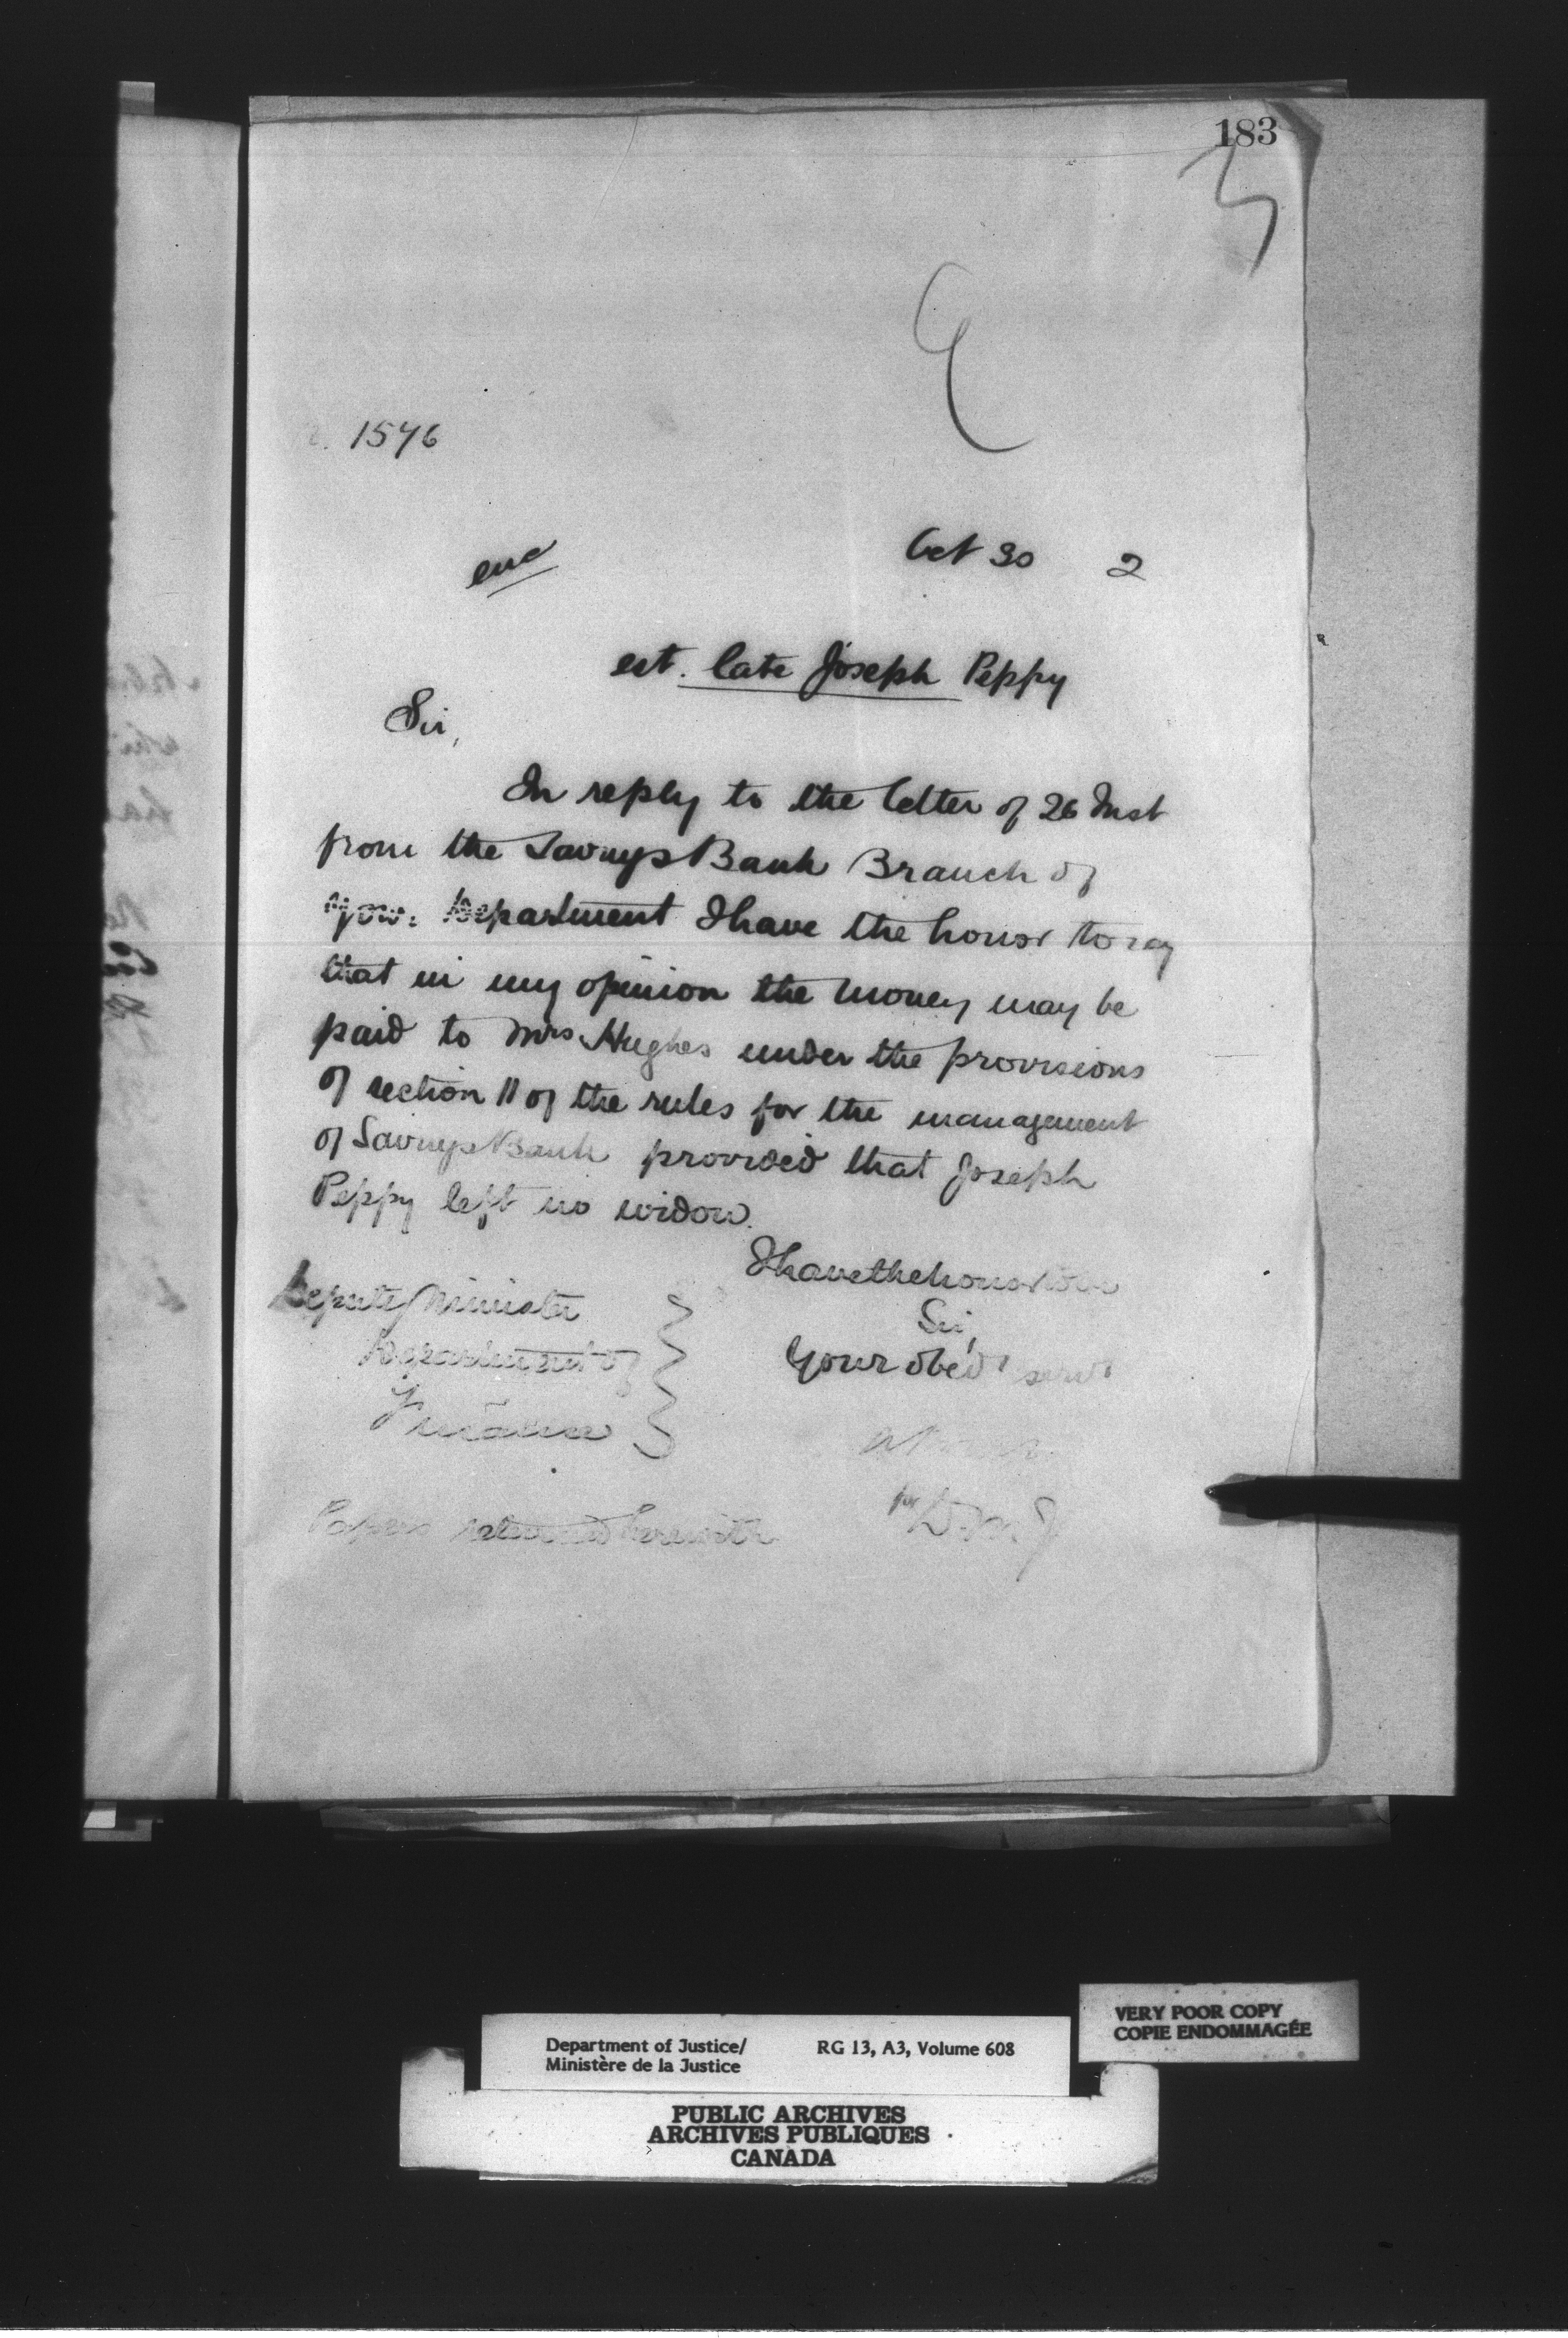 183
1546
enc
Oct 30 2
est. late Joseph Peppy
Sir,
In reply to the letter of 26 Inst
from the Savings Bank Branch of
your Department I have the honor to say
that in my opinion the money may be
paid to Mrs Hughes under the provisions
of section 11 of the rules for the management
of Savings Bank provided that Joseph
Peppy left no widow.
I have the honor to be
Sir,
Your obed' serv't
Deputy Minister
Department of
Finance
for D.M.J
Papers returned herewith
VERY POOR COPY
COPIE ENDOMMAGÉE
Department of Justice/ RG 13, A3, Volume 608
Ministère de la Justice
PUBLIC ARCHIVES
ARCHIVES PUBLIQUES
CANADA